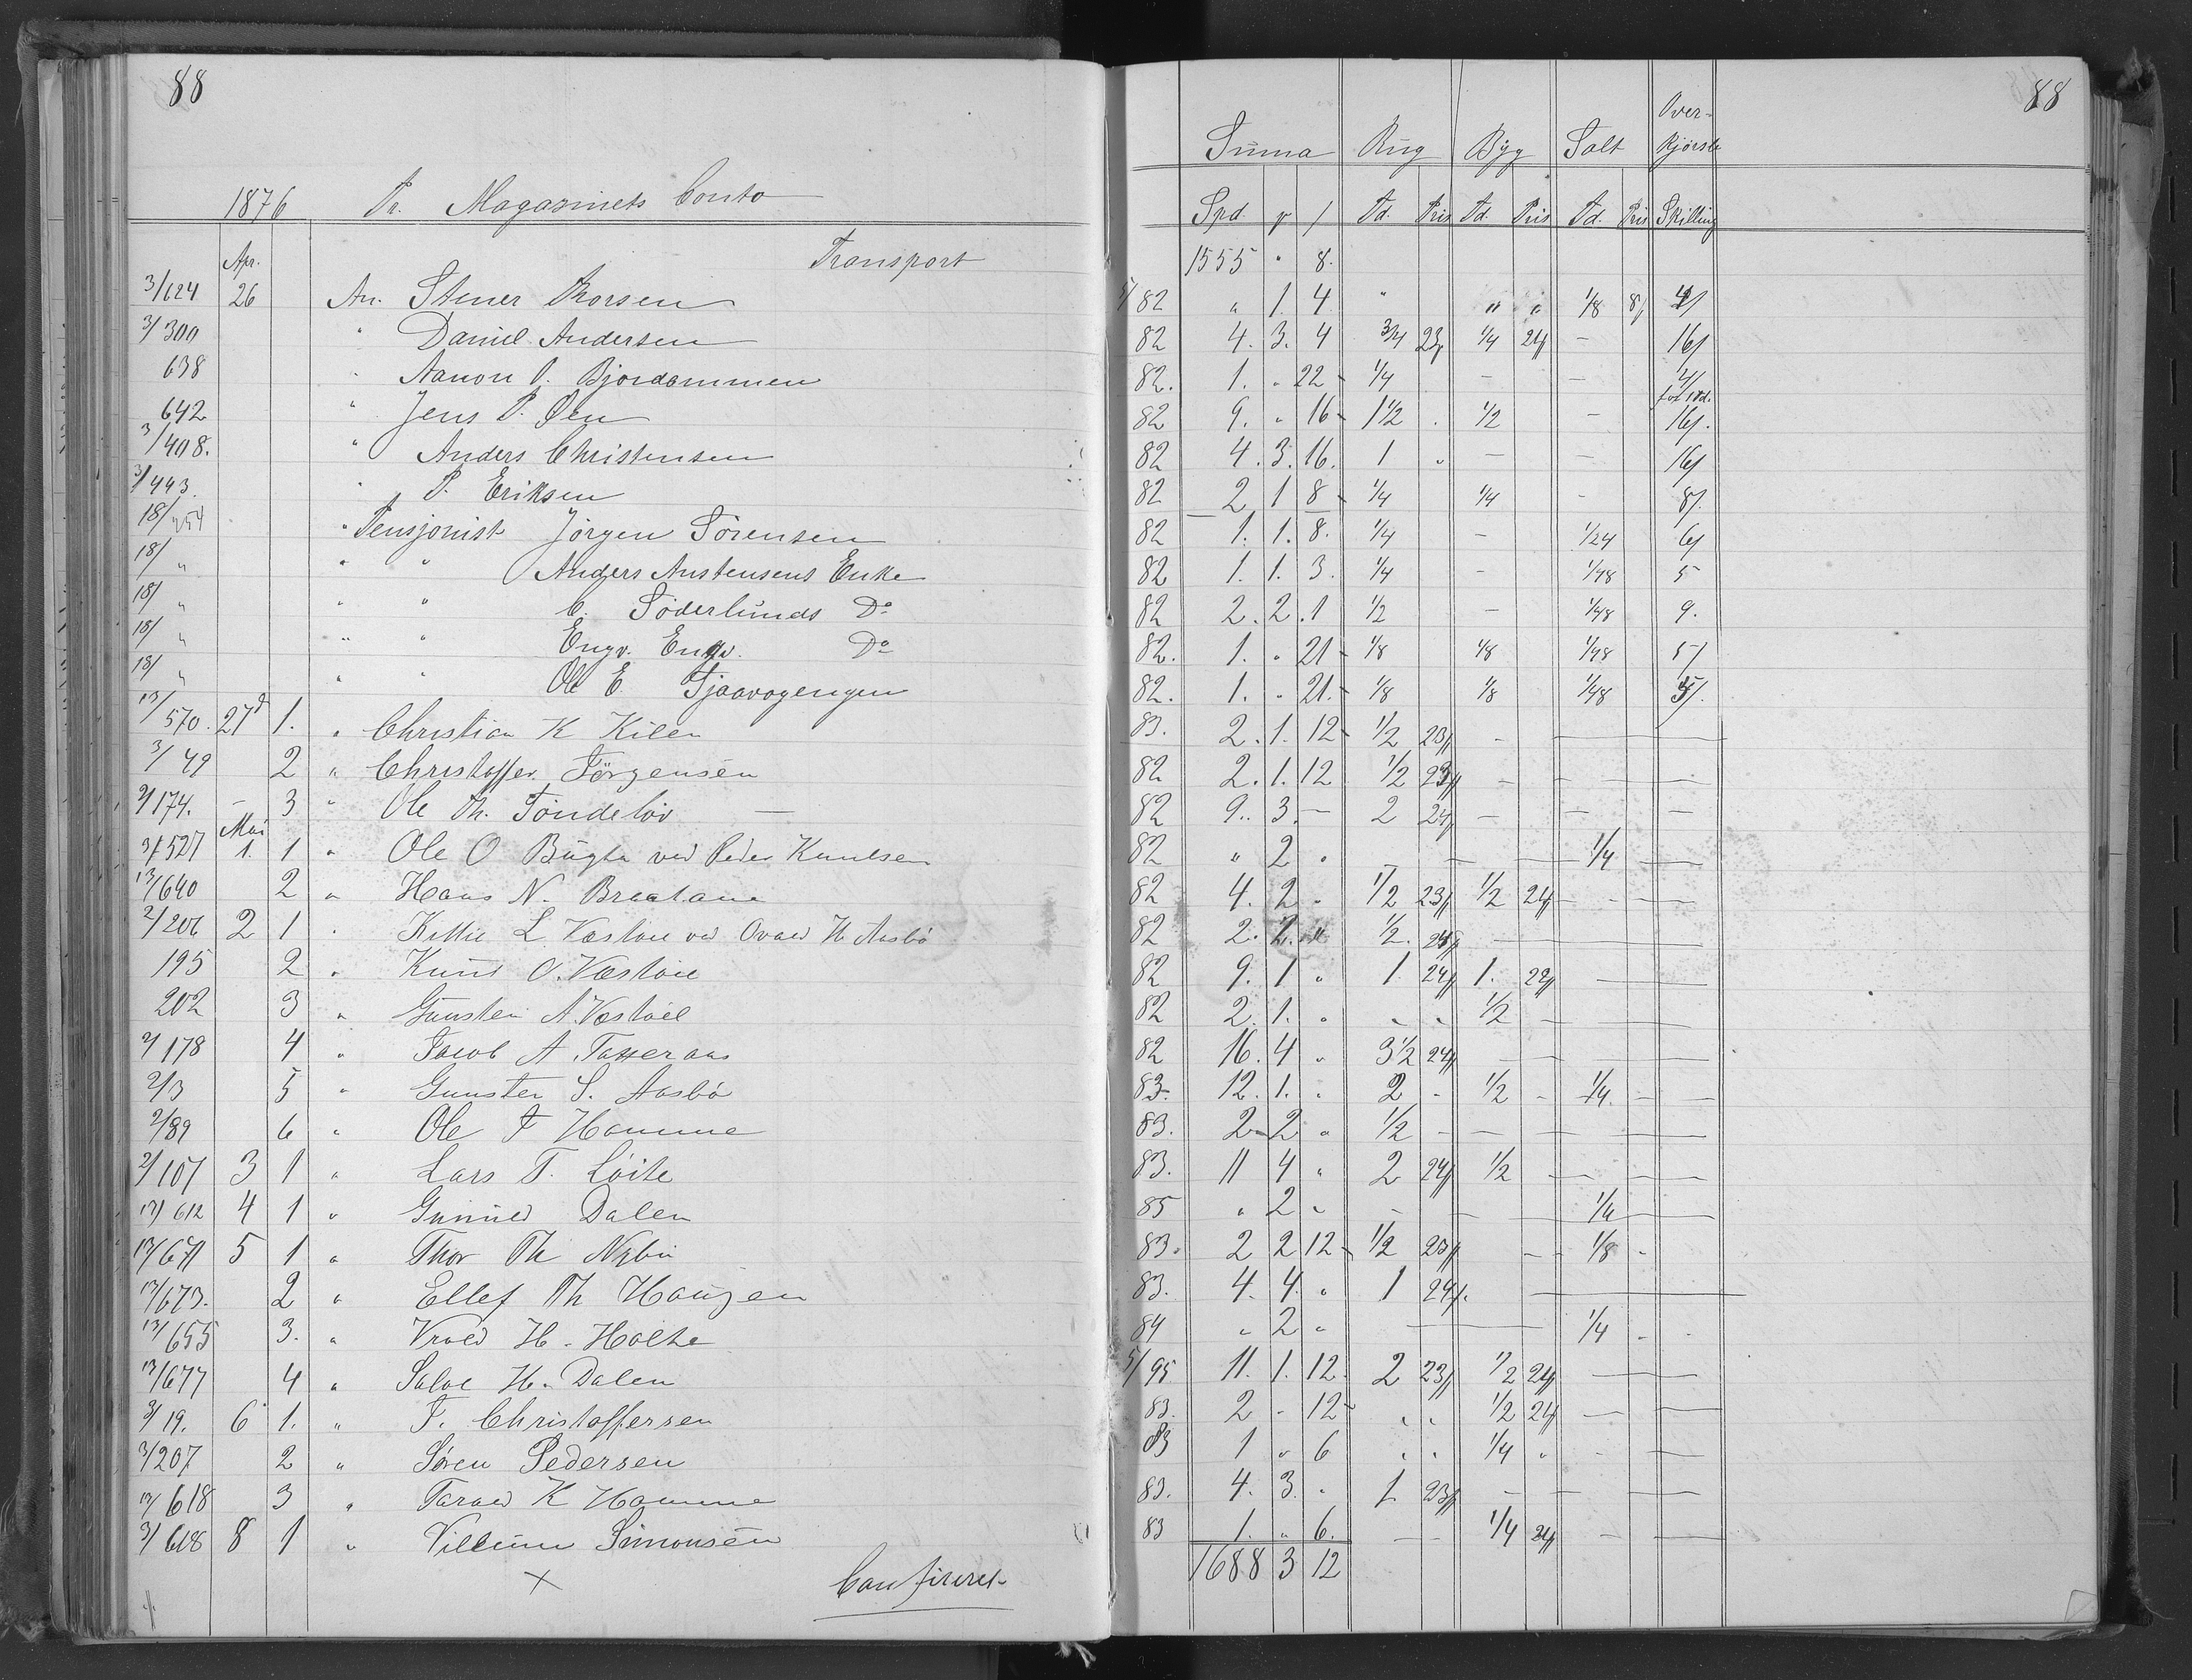 88
88
Over-
Suma Rug Byg Salt Kjørsle
1876 Pr. Magasinets Conto
Spd. Td. Pris Td. Pris Td. Pris Skilling
Apr. Transport 1555 " 8.
3/624 26 An. Stener Thorsen 5/82 " 1. 4 " " " 1/8 8/ 4/
3/300 " Daniel Andersen 82 4. 3. 4 3/4 23/ 1/4 24/ - 16/
638 " Aanon O. Bjordammen 82. 1. " 22 - 1/4 - - 4/
642 " Jens P. Øen 82 9. " 16 - 1 1/2 . 1/2 - 16/.
3/408. " Anders Christensen 82 4. 3. 16. 1 " - - 16/
3/443. " P. Eriksen 82 2 1 8 - 1/4 1/4 - 8/.
18/454 " Pensjonist Jörgen Sörensen 82 1. 1. 8. 1/4 - 1/24 6/
18/" " " Anders Anstensens Enke 82 1. 1. 3. 1/4 - 1/48 5
18/" " " C. Söderlunds Do 82 2. 2. 1 1/2 - 1/48 9.
18/" " " Engv. Do 82. 1. " 21 - 1/8 1/8 1/48 5/
18/" " " Ole E. Tjaavogengen 82. 1. " 21. - 1/8 1/8 1/48 5/.
13/570. 27d 1. " Christian K Kilen 83. 2. 1. 12 - 1/2 23/ -
3/49 2 " Christoffer Jörgensen 82 2. 1. 12 1/2 23/ - - - -
2/174. - 3 " Ole Th. Töndelöv 82 9. 3. - 2 24/ - - - -
Mai
3/527 1. 1 " Ole O Bugta ved Peder Knudsen 82 " 2 " - - - 1/4 -
13/640 2 " Hans N. Braatane 82 4. 2 " 1/2 23/ 1/2 24/ - - -
2/206 2 1 " Kittil L Væstöie ved H. Aasbö 82 2. 2. " 1/2. 24/ -
195 2 " Knud O. Væstöie 82 9. 1 " 1. 24/ 1. 22/ -
202 3 " Gunsten A. Væstöie 82 2. 1. " " " 1/2 -
2/178 4 " Jacob A. Tasseraas 82 16. 4 " 3 1/2 24/ - - -
2/3 5 " Gunsten S. Aasbö 83. 12. 1. " 2 - 1/2 - 1/4. - -
2/89 6 " Ole T Hamme 83. 2 - 2 " 1/2 - - - -
2/107 3 1 " Lars T. Löite 83. 11 4 " 2 24/ 1/2 - - -
13/612 4 1 " Gunnild Dalen 85 " 2 " - - - 1/4 -
13/671 5 1 " Thor Th Nybu 83. 2 2 12 - 1/2 23/ - - 1/8 -
13/673. 2 " Ellef Th Haugen 83. 4. 4. " 1 24/. -
13/655 3. " Vrold H. Holte 84 " 2 " - - 1/4 - -
13/677 4 " Salve H. Dalen 5/95 11. 1. 12. 2 23/ 1/2 24/ -
3/19. 6 1. " T. Christoffersen 83. 2 - 12 - " " 1/2 24/ - -
3/207 2 " Sören Pedersen 83 1 " 6 " " 1/4 " - -
13/618 3 " Tarald K Hamme 83. 4. 3. " 1 23/ - - -
3/618 8 1 " Villum Simonsen 83 1. " 6. - - 1/4 24/ - -
1688 3 12